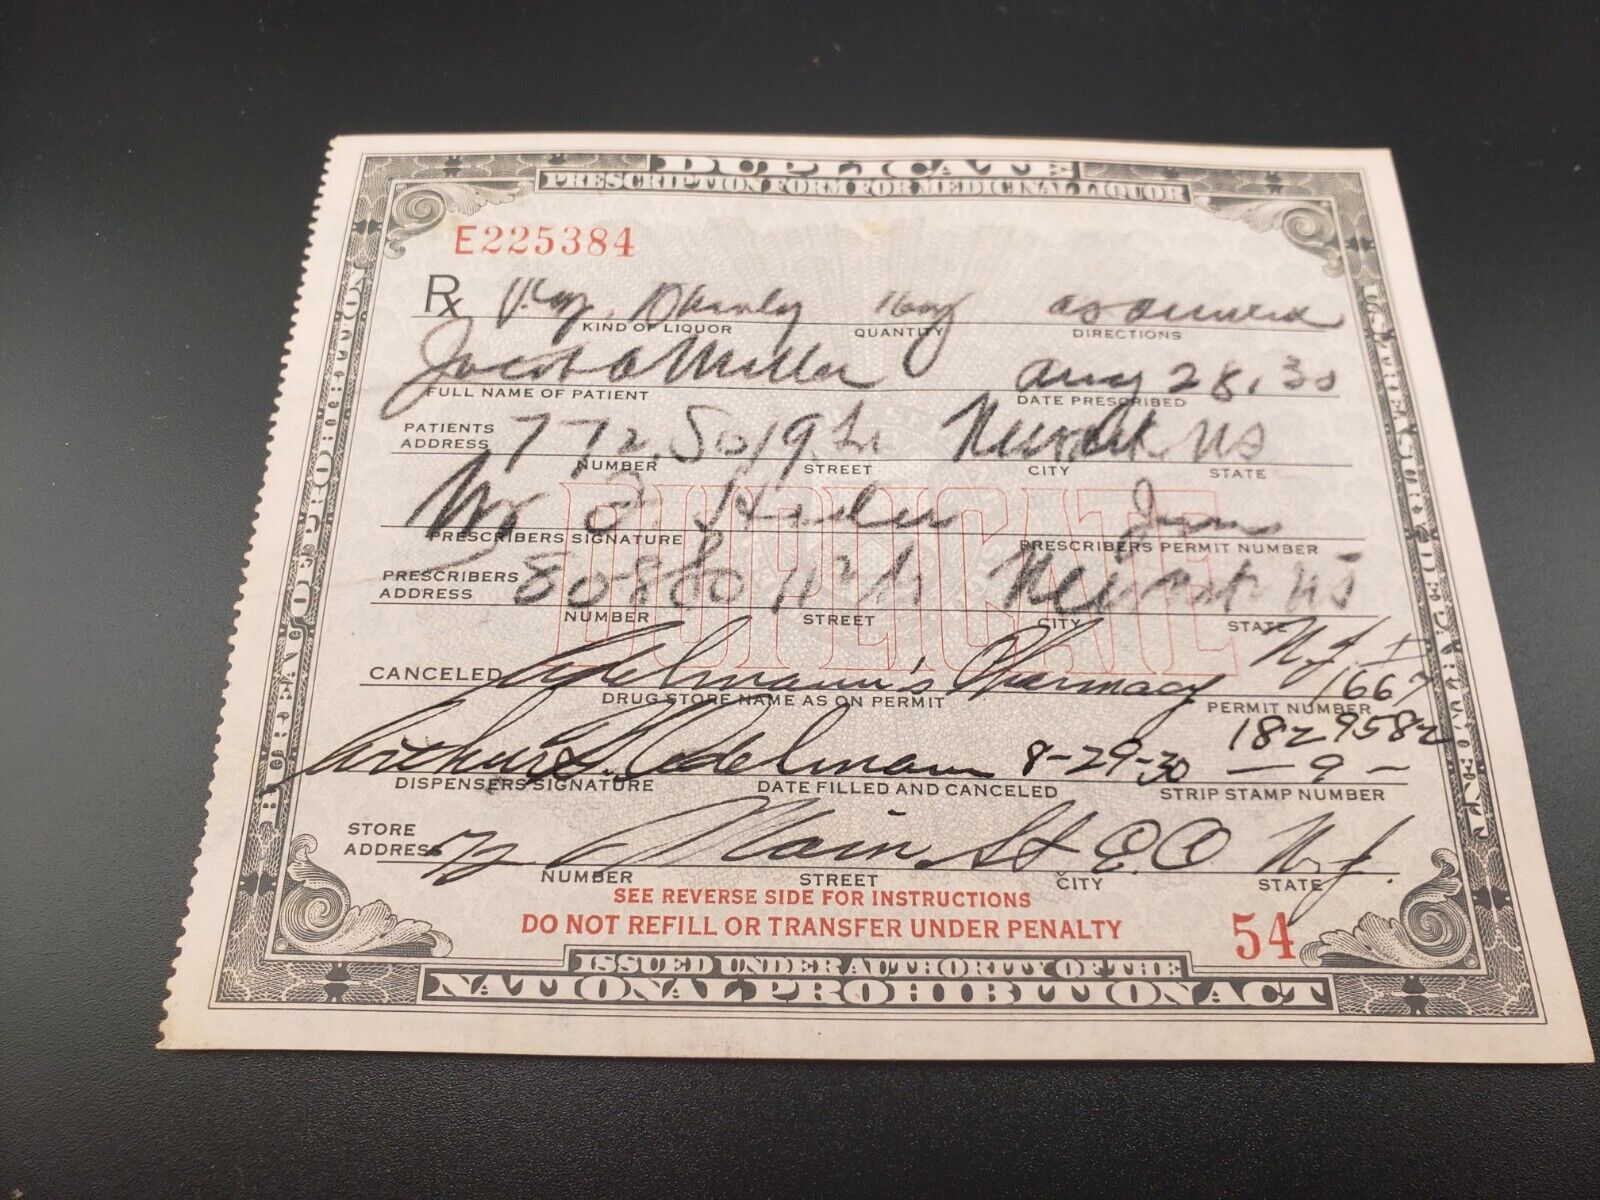 DUPLICATE
PRESCRIPTION FORM FOR MEDICINAL LIQUOR
BUREAU OF PROHIBITION
U.S. TREASURY DEPARTMENT
E225384
Rx
KIND OF LIQUOR QUANTITY DIRECTIONS
Jacob Miller Aug 28, 30
FULL NAME OF PATIENT DATE PRESCRIBED
PATIENTS ADDRESS 772 So 19 St Newark NJ
NUMBER STREET CITY STATE
DUPLICATE
PRESCRIBERS SIGNATURE PRESCRIBERS PERMIT NUMBER
PRESCRIBERS ADDRESS Newark NJ
NUMBER STREET CITY STATE
CANCELED Adelmann's Pharmacy N.J. I 1667
DRUG STORE NAME AS ON PERMIT PERMIT NUMBER
Arthur Adelmann 8-29-30 1829582 - 9 -
DISPENSERS SIGNATURE DATE FILLED AND CANCELED STRIP STAMP NUMBER
STORE ADDRESS 72 Main St E.O. N.J.
NUMBER STREET CITY STATE
SEE REVERSE SIDE FOR INSTRUCTIONS
DO NOT REFILL OR TRANSFER UNDER PENALTY 54
ISSUED UNDER AUTHORITY OF THE
NATIONAL PROHIBITION ACT